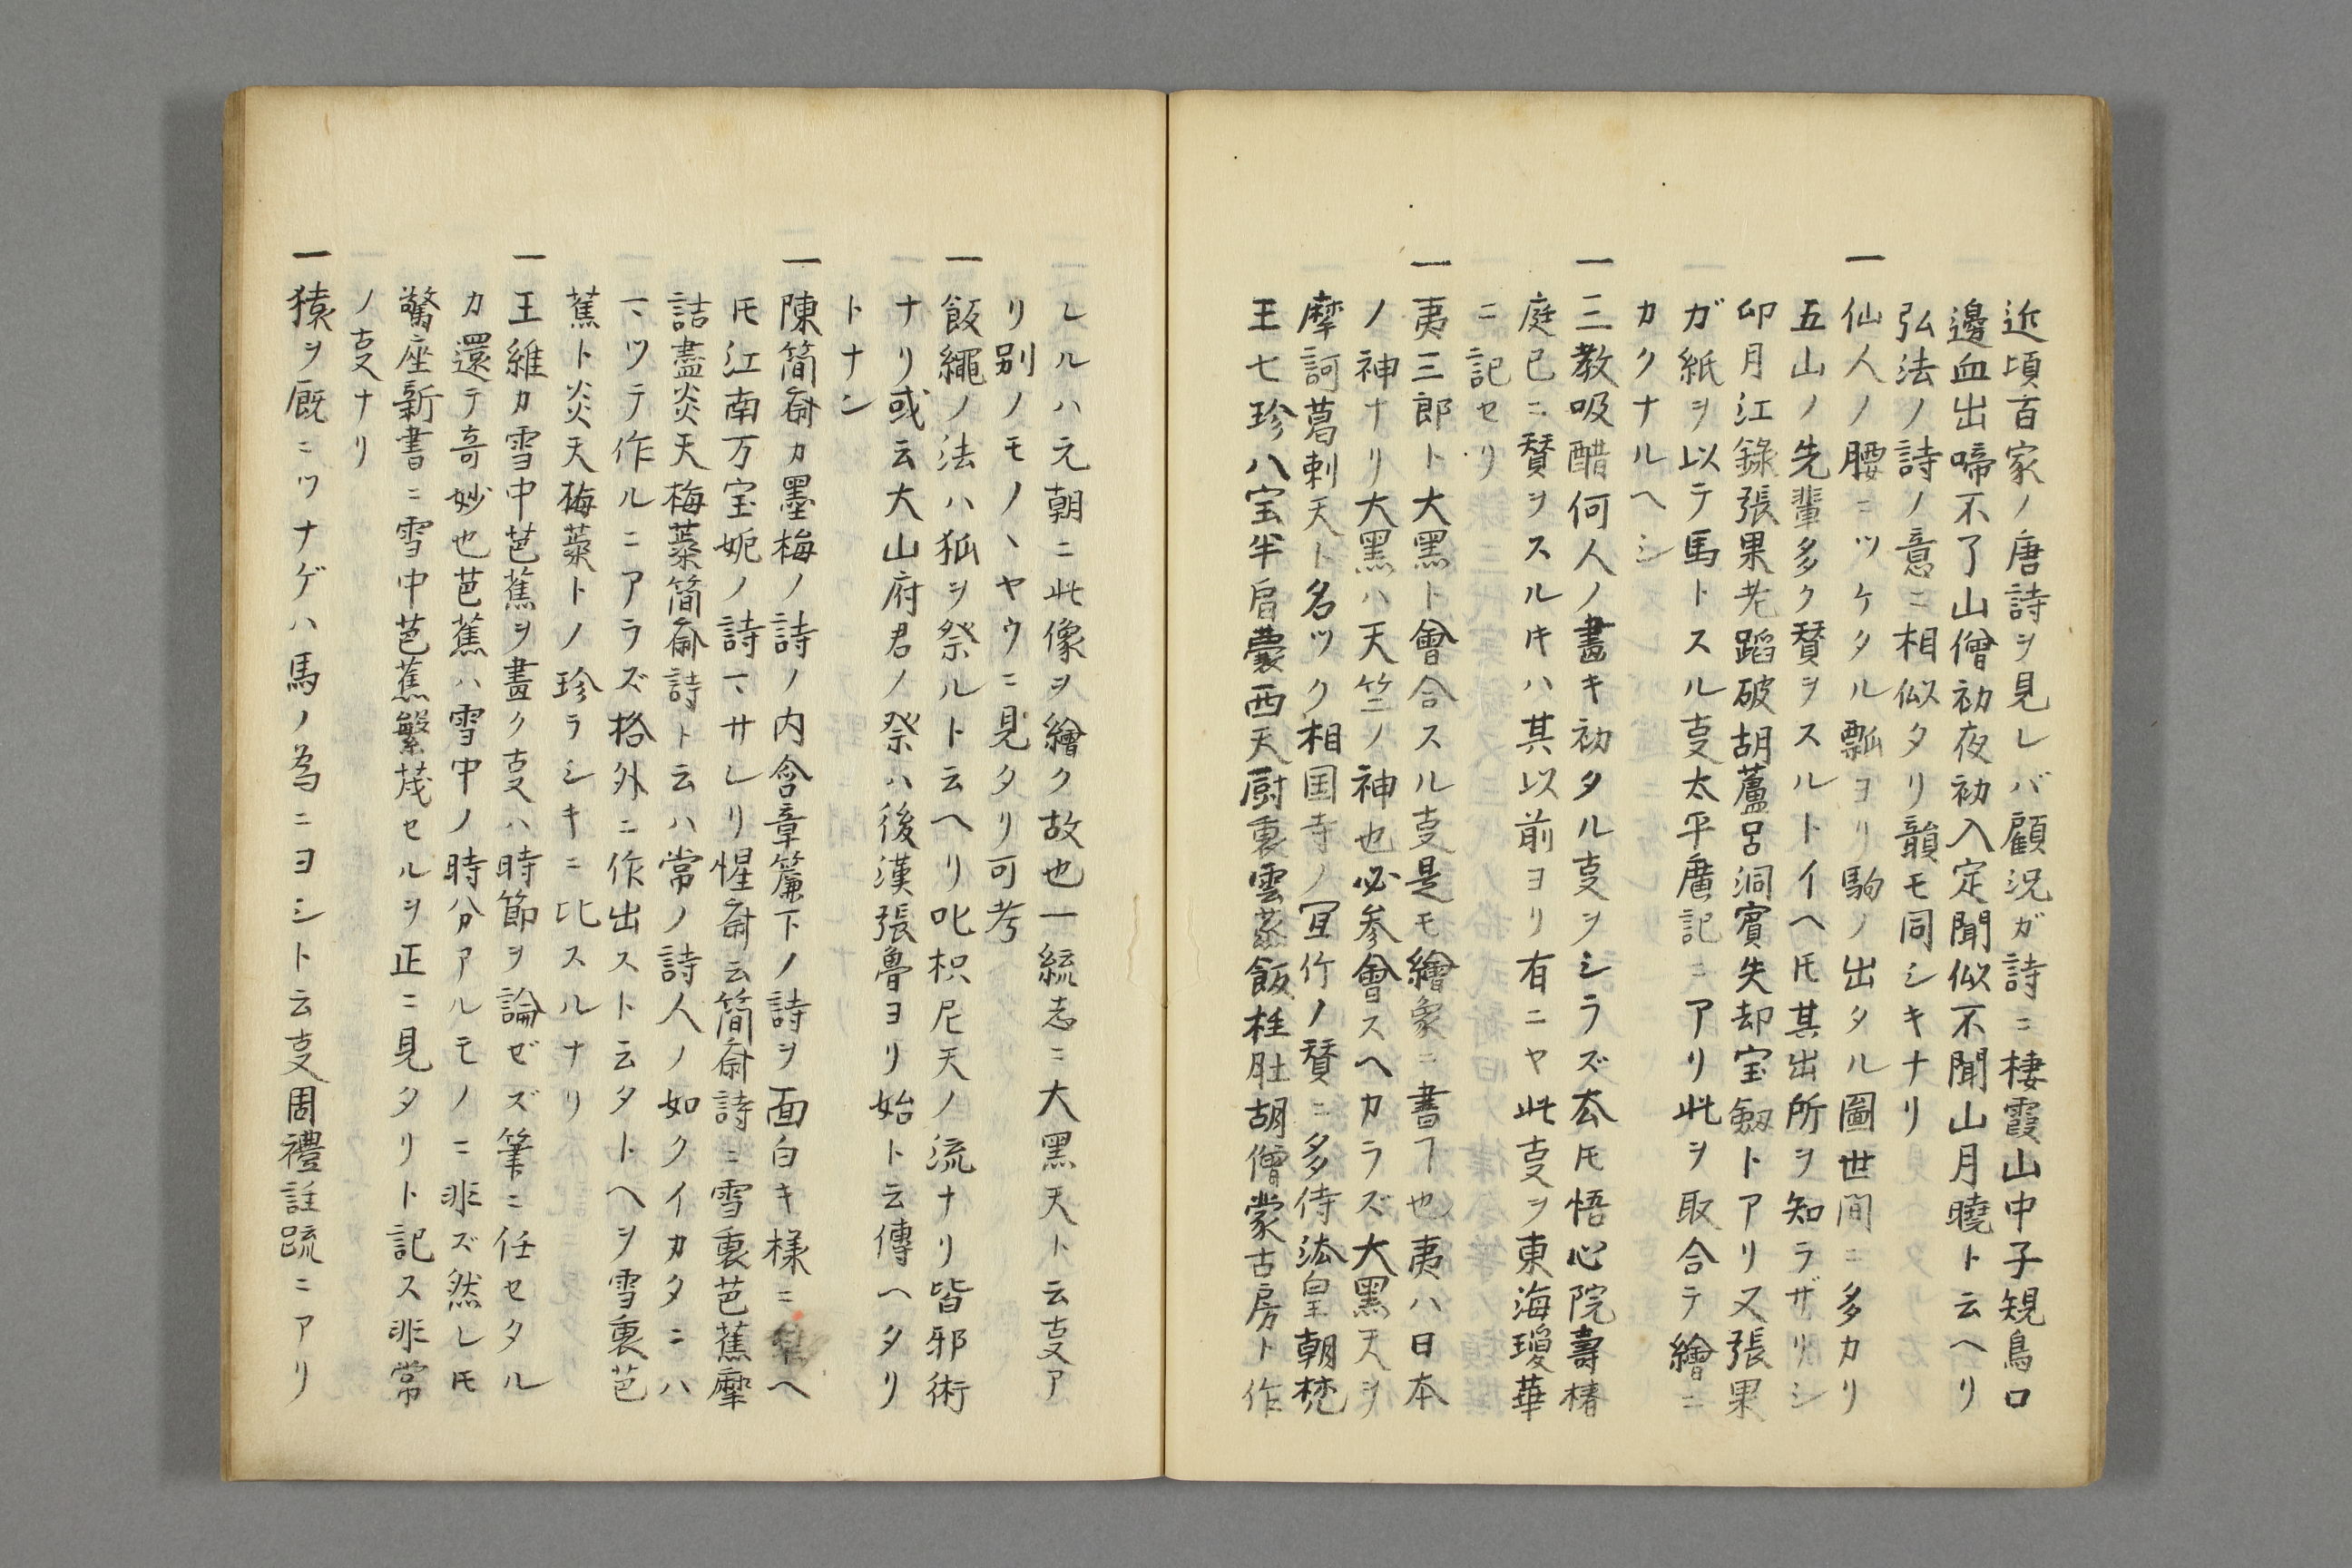 近頃百家ノ唐詩ヲ見レバ顧況ガ詩ニ棲霞山中子規鳥口
邊血出啼不了山僧初夜初入定聞似不聞山月曉ト云ヘリ
弘法ノ詩ノ意ニ相似タリ韻モ同シキナリ
一仙人ノ腰ニツケタル瓢ヨリ駒ノ出タル圖世間ニ多カリ
五山ノ先輩多ク賛ヲスルトイヘ𪜈其出所ヲ知ラザリシ
卬月江錄張果老蹈破胡蘆呂洞賓失却宝劔トアリ又張果
ガ紙ヲ以テ馬トスル㕝太平廣記ニアリ此ヲ取合テ繪ニ
カクナルヘシ
一三教吸醋何人ノ畫キ初タル㕝ヲシラズ㕦𪜈悟心院壽椿
庭已ニ賛ヲスルキハ其以前ヨリ有ニヤ此㕝ヲ東海瓊華
ニ記セリ
一夷三郎ト大黑ト會合スル㕝是モ繪象ニ書ヿ也夷ハ日本
ノ神ナリ大黑ハ天竺ノ神也必参會スヘカラズ大黑天ヲ
摩訶葛剌天ト名ツク相国寺ノ冝竹ノ賛ニ多侍法皇朝梵
王七珍八宝半肩囊西天厨裏雲蒸飯柱肚胡僧蒙古房ト作
レルハ元朝ニ此像ヲ繪ク故也一統志ニ大黑天ト云㕝ア
リ別ノモノヽヤウニ見タリ可考
一飯繩ノ法ハ狐ヲ祭ルト云ヘリ叱枳尼天ノ流ナリ皆邪術
ナリ或云大山府君ノ祭ハ後漢張魯ヨリ始ト云傳ヘタリ
トナン
一陳簡斎カ墨梅ノ詩ノ内含章簷下ノ詩ヲ面白キ様ニ ヘ
𪜈江南万宝妮ノ詩ニサレリ惺斎云簡斎詩ニ雪裏芭蕉摩
詰畫炎天梅蘂簡斎詩ト云ハ常ノ詩人ノ如クイカタニハ
マツテ作ルニアラズ格外ニ作出スト云タトヘヲ雪裏芭
蕉ト炎天梅蘂トノ珍ラシキニ比スルナリ
一王維カ雪中芭蕉ヲ畫ク㕝ハ時節ヲ論ゼズ筆ニ任セタル
カ還テ奇妙也芭蕉ハ雪中ノ時分アルモノニ非ズ然レ𪜈
驚座新書ニ雪中芭蕉繁茂セルヲ正ニ見タリト記ス非常
ノ㕝ナリ
一猿ヲ厩ニツナゲハ馬ノ為ニヨシト云㕝周禮註疏ニアリ